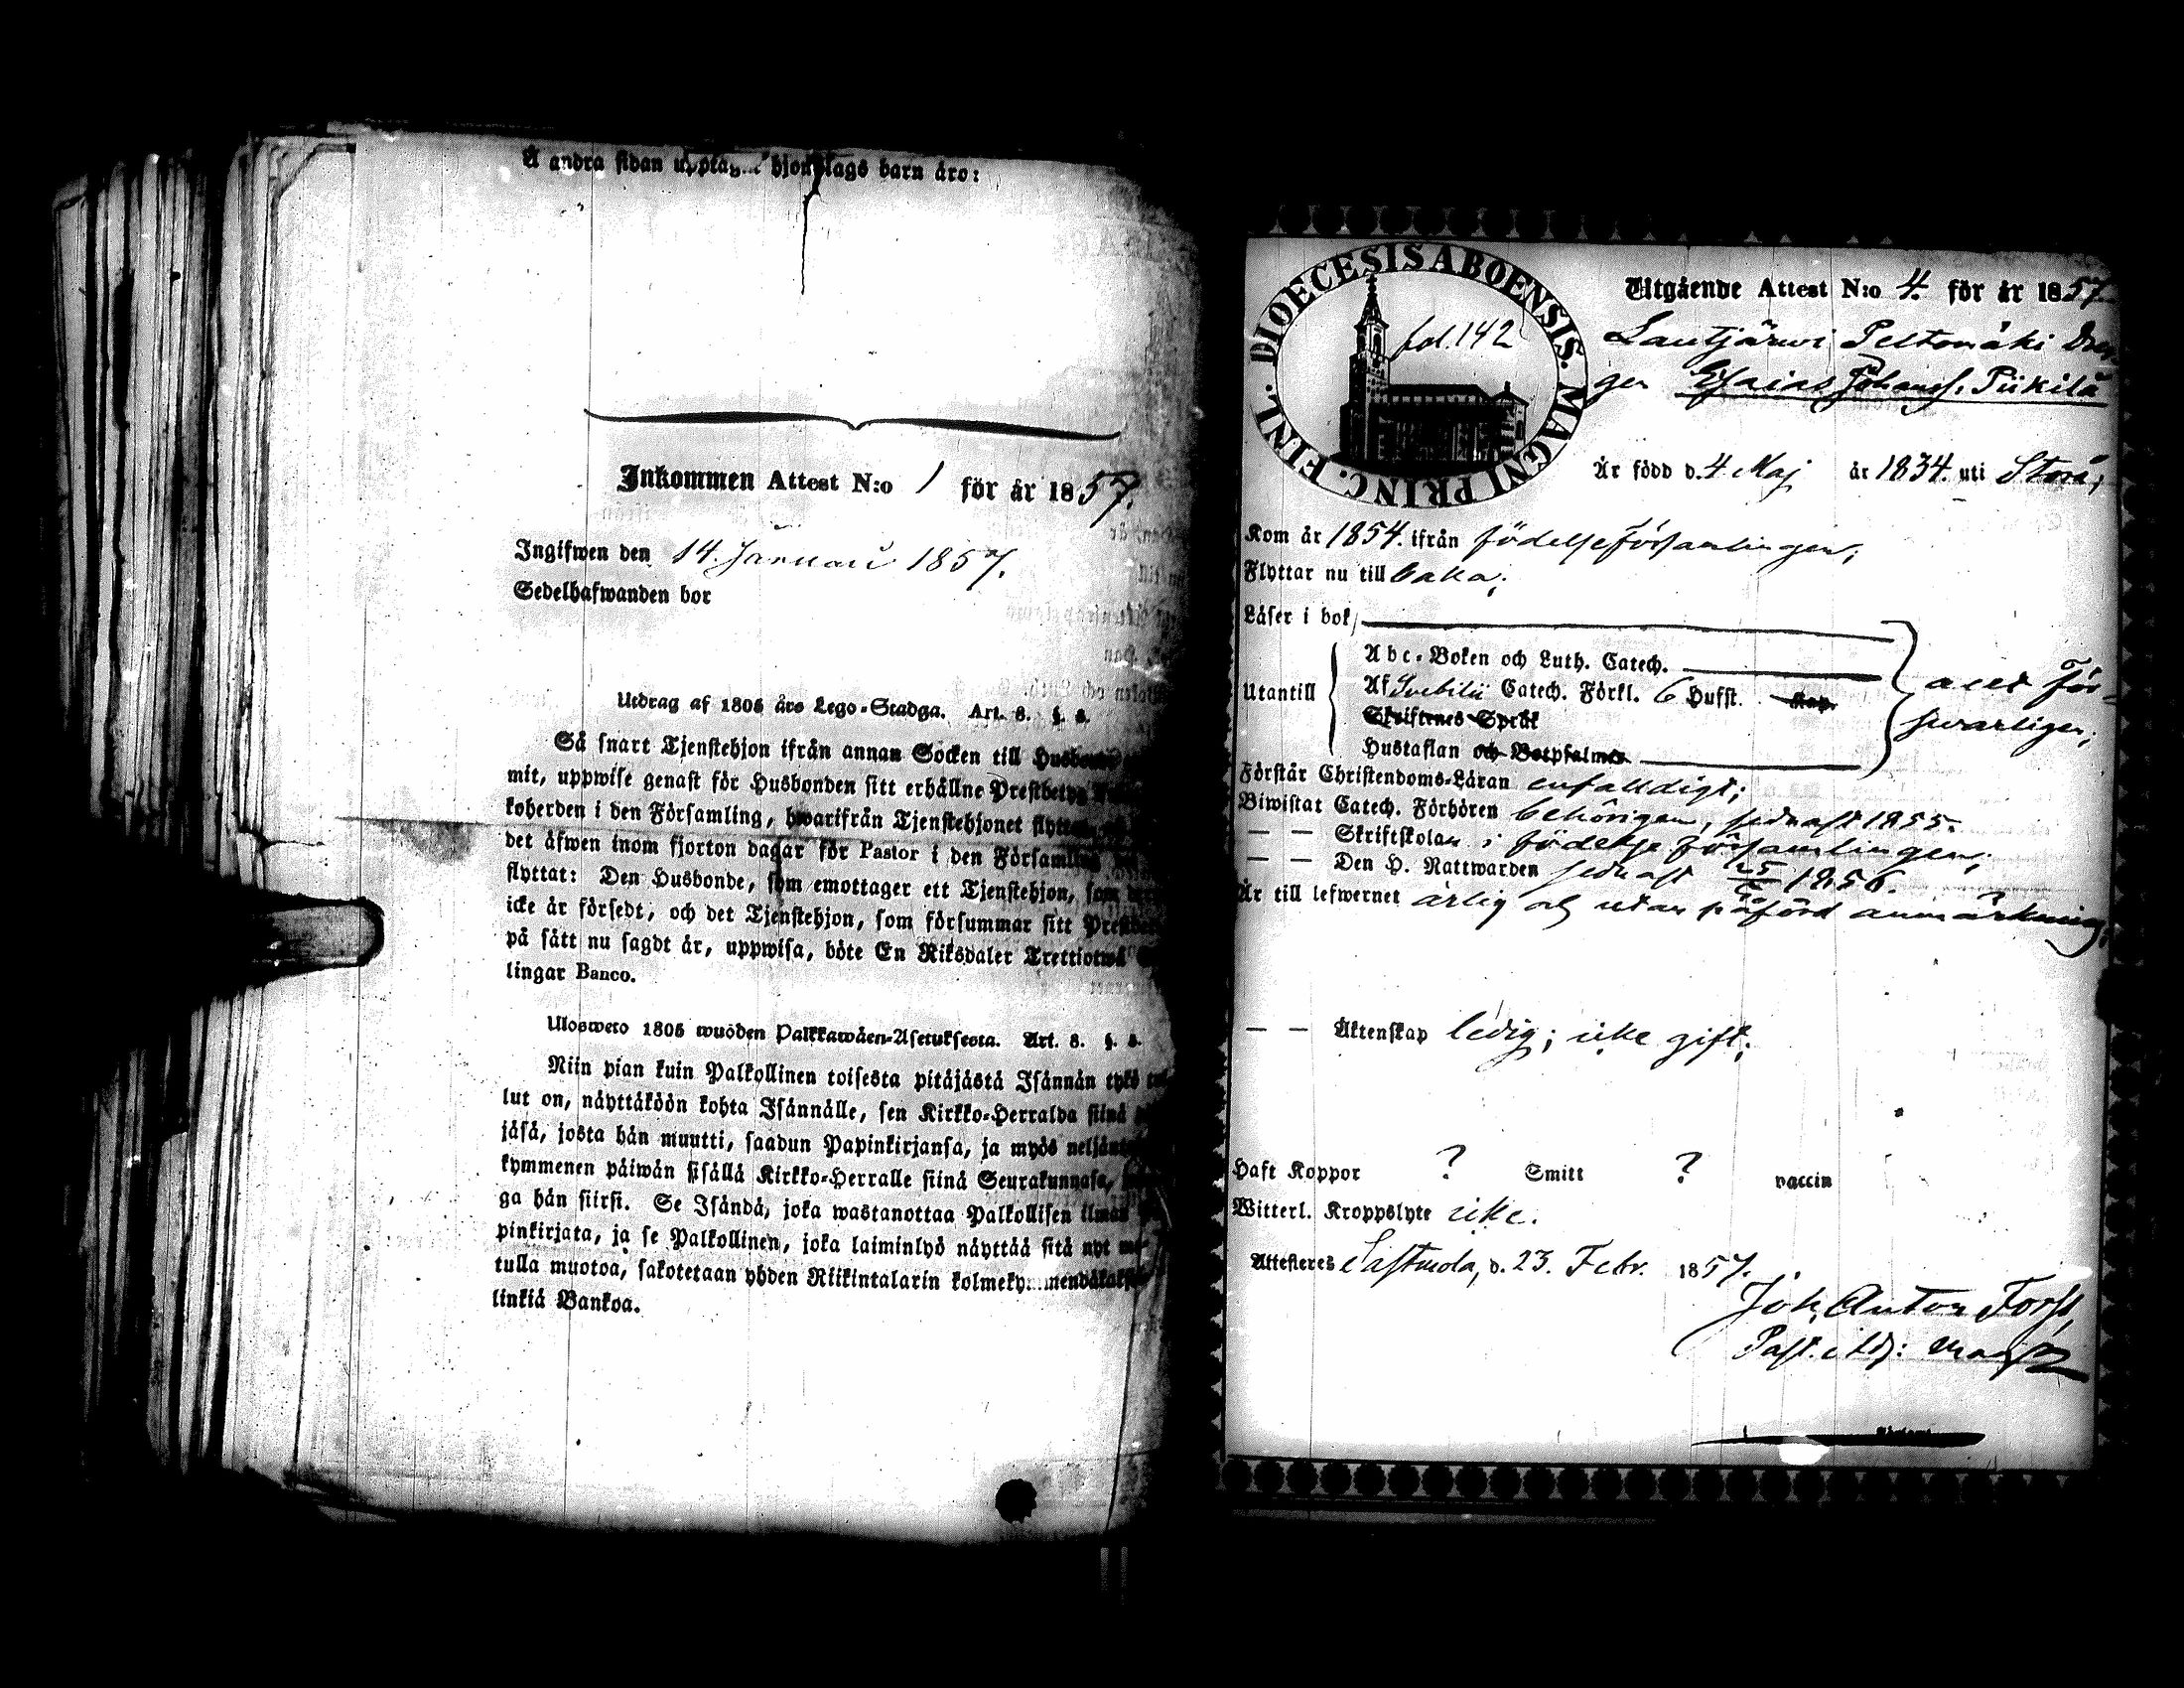 Å andra sidan upptagne hjonelags barn äro:
Inkommen Attest N:o 1 för år 1857.
Ingifwen den 14. Januari 1857.
Sedelhafwanden bor
Utdrag af 1805 års Lego-Stadga. Art. 8. §. 8.
Så snart Tjenstehjon ifrån annan Socken till
mit, uppwise genast för Husbonden sitt erhållne Prestbetyg
koherden i den Församling, hwarifrån Tjenstehjonet
det äfwen inom fjorton dagar för Pastor i den Församling
flyttat: Den Husbonde, som emottager ett Tjenstehjon, som
icke är försedt, och det Tjenstehjon, som försummar sitt
på sätt nu sagdt är, uppwisa, böte En Riksdaler Trettiotwå
lingar Banco.
Ulosweto 1805 wuoden Palkkawäen-Asetuksesta. Art. 8. §. 8.
Niin pian kuin Palkollinen toisesta pitäjästä Isännän työö
lut on, näyttäköön kohta Isännälle, sen Kirkko-Herralda siinä
jäsä, josta hän muutti, saadun Papinkirjansa, ja myös
kymmenen päiwän sisällä Kirkko-Herralle siinä Seurakunnasa,
ga hän siirsi. Se Isändä, joka wastanottaa Palkollisen ilman
pinkirjata, ja se Palkollinen, joka laiminlyö näyttää sitä nyt
tulla muotoa, sakotetaan yhden Riikintalarin
linkiä Bankoa.
DIOECESIS ABOENSIS. MAGNI PRINC. FINL.
fol. 142
Utgående Attest N:o 4. för år 1857
Lautjärwi Peltomäki Drän
gen Esaias Johansf. Piikilä
Är född d. 4 Maj år 1834. uti Storå,
Kom år 1854. ifrån födelseförsamlingen;
Flyttar nu till baka;
Läser i bok,
Utantill
Abc-Boken och Luth. Catech.
Af Svebilii Catech. Förkl. 6 Hufst. Kap.
Skriftenes Språk
Hustaflan och Botpsalmer.
med för-
swarligen;
Förstår Christendoms-Läran enfalldigt;
Biwistat Catech. Förhören behörigen, sednast 1855.
— — Skriftskolan i födelse församlingen;
— — Den H. Nattwarden sednast 1856.
Är till lefwernet ärlig och utan påförd anmärkning,
— — Äktenskap ledig; icke gift.
Haft Koppor ? Smitt ? vaccin
Witterl. Kroppslyte icke.
Attesteres Sastmola, d. 23. Febr. 1857.
Joh. Anton Forss,